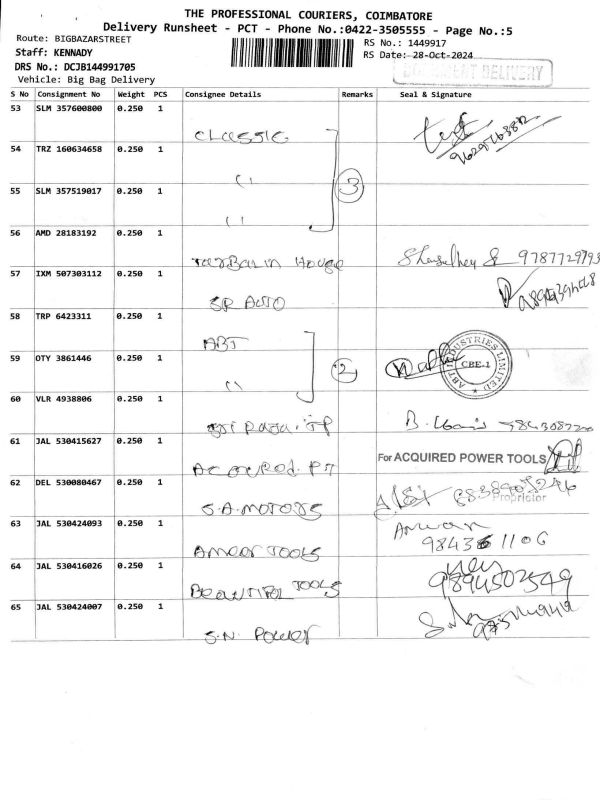 THE PROFESSIONAL COURIERS, COIMBATORE
Delivery Runsheet - PCT - Phone No.:0422-3505555 - Page No.:5
Route: BIGBAZARSTREET
RS No.: 1449917
Staff: KENNADY
RS Date: 28-Oct-2024
DRS No.: DCJB144991705
DELIVERY
Vehicle: Big Bag Delivery
S No Consignment No Weight PCS Consignee Details Remarks Seal & Signature
53 SLM 357600800 0.250 1
CLASSIC
54 TRZ 160634658 0.250 1
〃
3
55 SLM 357519017 0.250 1
〃
56 AMD 28183192 0.250 1
TarBalin House 9787729793
57 IXM 507303112 0.250 1
SR AUTO
58 TRP 6423311 0.250 1
ABT
59 OTY 3861446 0.250 1
〃
2
ABT INDUSTRIES LIMITED
CBE-1
60 VLR 4938806 0.250 1
61 JAL 530415627 0.250 1
For ACQUIRED POWER TOOLS
62 DEL 530080467 0.250 1
Proprietor
S.A. MOTORS
63 JAL 530424093 0.250 1
Anwar
AMEER TOOLS
64 JAL 530416026 0.250 1
9894502549
BEAUTIFUL TOOLS
65 JAL 530424007 0.250 1
S.N. POWER